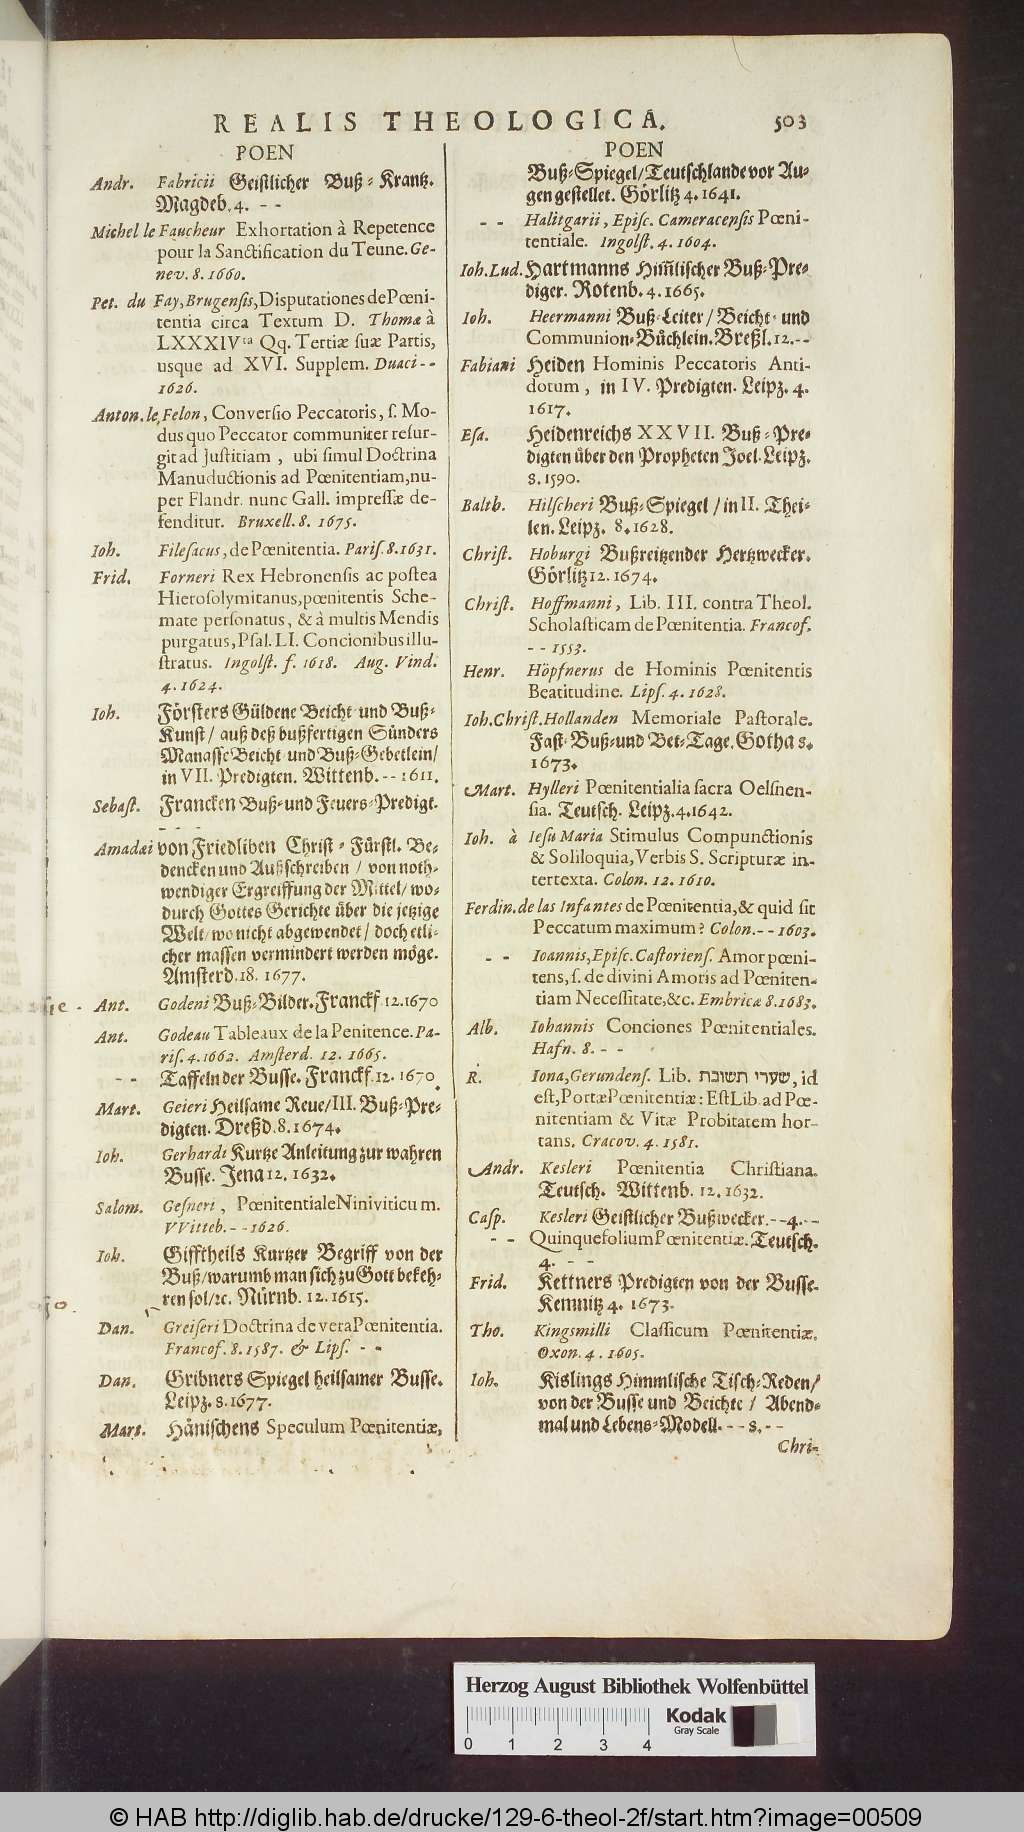 REALIS THEOLOGICA. 503
POEN
Andr. Fabricii Geistlicher Buß-Krantz.
Magdeb. 4. - -
Michel le Faucheur Exhortation à Repetence
pour la Sanctification du Teune. Ge-
nev. 8. 1660.
Pet. du Fay, Brugensis, Disputationes de Pœni-
tentia circa Textum D. Thomæ à
LXXXIVta Qq. Tertiæ suæ Partis,
usque ad XVI. Supplem. Duaci - -
1626.
Anton. le Felon, Conversio Peccatoris, s. Mo-
dus quo Peccator communiter resur-
git ad Justitiam, ubi simul Doctrina
Manuductionis ad Pœnitentiam, nu-
per Flandr. nunc Gall. impressæ de-
fenditur. Bruxell. 8. 1675.
Ioh. Filesacus, de Pœnitentia. Paris. 8. 1631.
Frid. Forneri Rex Hebronensis ac postea
Hierosolymitanus, pœnitentis Sche-
mate personatus, & à multis Mendis
purgatus, Psal. LI. Concionibus illu-
stratus. Ingolst. f. 1618. Aug. Vind.
4. 1624.
Ioh. Försters Güldene Beicht- und Buß-
Kunst / auß deß bußfertigen Sünders
Manasse Beicht- und Buß-Gebetlein /
in VII. Predigten. Wittenb. - - 1611.
Sebast. Francken Buß- und Feuers-Predigt.
- - -
Amadæi von Friedliben Christ-Fürstl. Be-
dencken und Außschreiben / von noth-
wendiger Ergreiffung der Mittel / wo-
durch Gottes Gerichte über die jetzige
Welt / wo nicht abgewendet / doch etli-
cher massen vermindert werden möge.
Amsterd. 18. 1677.
Ant. Godeni Buß-Bilder. Franckf. 12. 1670
Ant. Godeau Tableaux de la Penitence. Pa-
ris. 4. 1662. Amsterd. 12. 1665.
- - Taffeln der Busse. Franckf. 12. 1670.
Mart. Geieri Heilsame Reue / III. Buß-Pre-
digten. Dreßd. 8. 1674.
Ioh. Gerhardi Kurtze Anleitung zur wahren
Busse. Jena 12. 1632.
Salom. Gesneri, Pœnitentiale Niniviticum.
VVitteb. - - 1626.
Ioh. Gifftheils Kurtzer Begriff von der
Buß / warumb man sich zu Gott bekeh-
ren sol / ꝛc. Nürnb. 12. 1615.
Dan. Greiseri Doctrina de vera Pœnitentia.
Francof. 8. 1587. & Lips. - -
Dan. Gribners Spiegel heilsamer Busse.
Leipz. 8. 1677.
Mart. Hänischens Speculum Pœnitentiæ,
POEN
Buß-Spiegel / Teutschlande vor Au-
gen gestellet. Görlitz 4. 1641.
- - Halitgarii, Episc. Cameracensis Pœni-
tentiale. Ingolst. 4. 1604.
Ioh. Lud. Hartmanns Him̃lischer Buß-Pre-
diger. Rotenb. 4. 1665.
Ioh. Heermanni Buß-Leiter / Beicht- und
Communion-Büchlein. Breßl. 12. - -
Fabiani Heiden Hominis Peccatoris Anti-
dotum, in IV. Predigten. Leipz. 4.
1617.
Esa. Heidenreichs XXVII. Buß-Pre-
digten über den Propheten Joel. Leipz.
8. 1590.
Balth. Hilscheri Buß-Spiegel / in II. Thei-
len. Leipz. 8. 1628.
Christ. Hoburgi Bußreitzender Hertzwecker.
Görlitz 12. 1674.
Christ. Hoffmanni, Lib. III. contra Theol.
Scholasticam de Pœnitentia. Francof.
- - 1553.
Henr. Höpfnerus de Hominis Pœnitentis
Beatitudine. Lips. 4. 1628.
Ioh. Christ. Hollanden Memoriale Pastorale.
Fast- Buß- und Bet-Tage. Gotha 8.
1673.
Mart. Hylleri Pœnitentialia sacra Oelsnen-
sia. Teutsch. Leipz. 4. 1642.
Ioh. à Iesu Maria Stimulus Compunctionis
& Soliloquia, Verbis S. Scripturæ in-
tertexta. Colon. 12. 1610.
Ferdin. de las Infantes de Pœnitentia, & quid sit
Peccatum maximum? Colon. - - 1603.
- - Ioannis, Episc. Castoriens. Amor pœni-
tens, s. de divini Amoris ad Pœniten-
tiam Necessitate, &c. Embricæ 8. 1683.
Alb. Iohannis Conciones Pœnitentiales.
Hafn. 8. - -
R. Iona, Gerundens. Lib. שערי תשובת, id
est, Portæ Pœnitentiæ: Est Lib. ad Pœ-
nitentiam & Vitæ Probitatem hor-
tans. Cracov. 4. 1581.
Andr. Kesleri Pœnitentia Christiana.
Teutsch. Wittenb. 12. 1632.
Casp. Kesleri Geistlicher Bußwecker. - - 4. - -
- - Quinquefolium Pœnitentiæ. Teutsch.
4. - -
Frid. Kettners Predigten von der Busse.
Kemnitz 4. 1673.
Tho. Kingsmilli Classicum Pœnitentiæ.
Oxon. 4. 1605.
Ioh. Kislings Himmlische Tisch-Reden /
von der Busse und Beichte / Abend-
mal und Lebens-Modell. - - 8. - -
Chri-
Herzog August Bibliothek Wolfenbüttel
Kodak
Gray Scale
0 1 2 3 4
© HAB http://diglib.hab.de/drucke/129-6-theol-2f/start.htm?image=00509